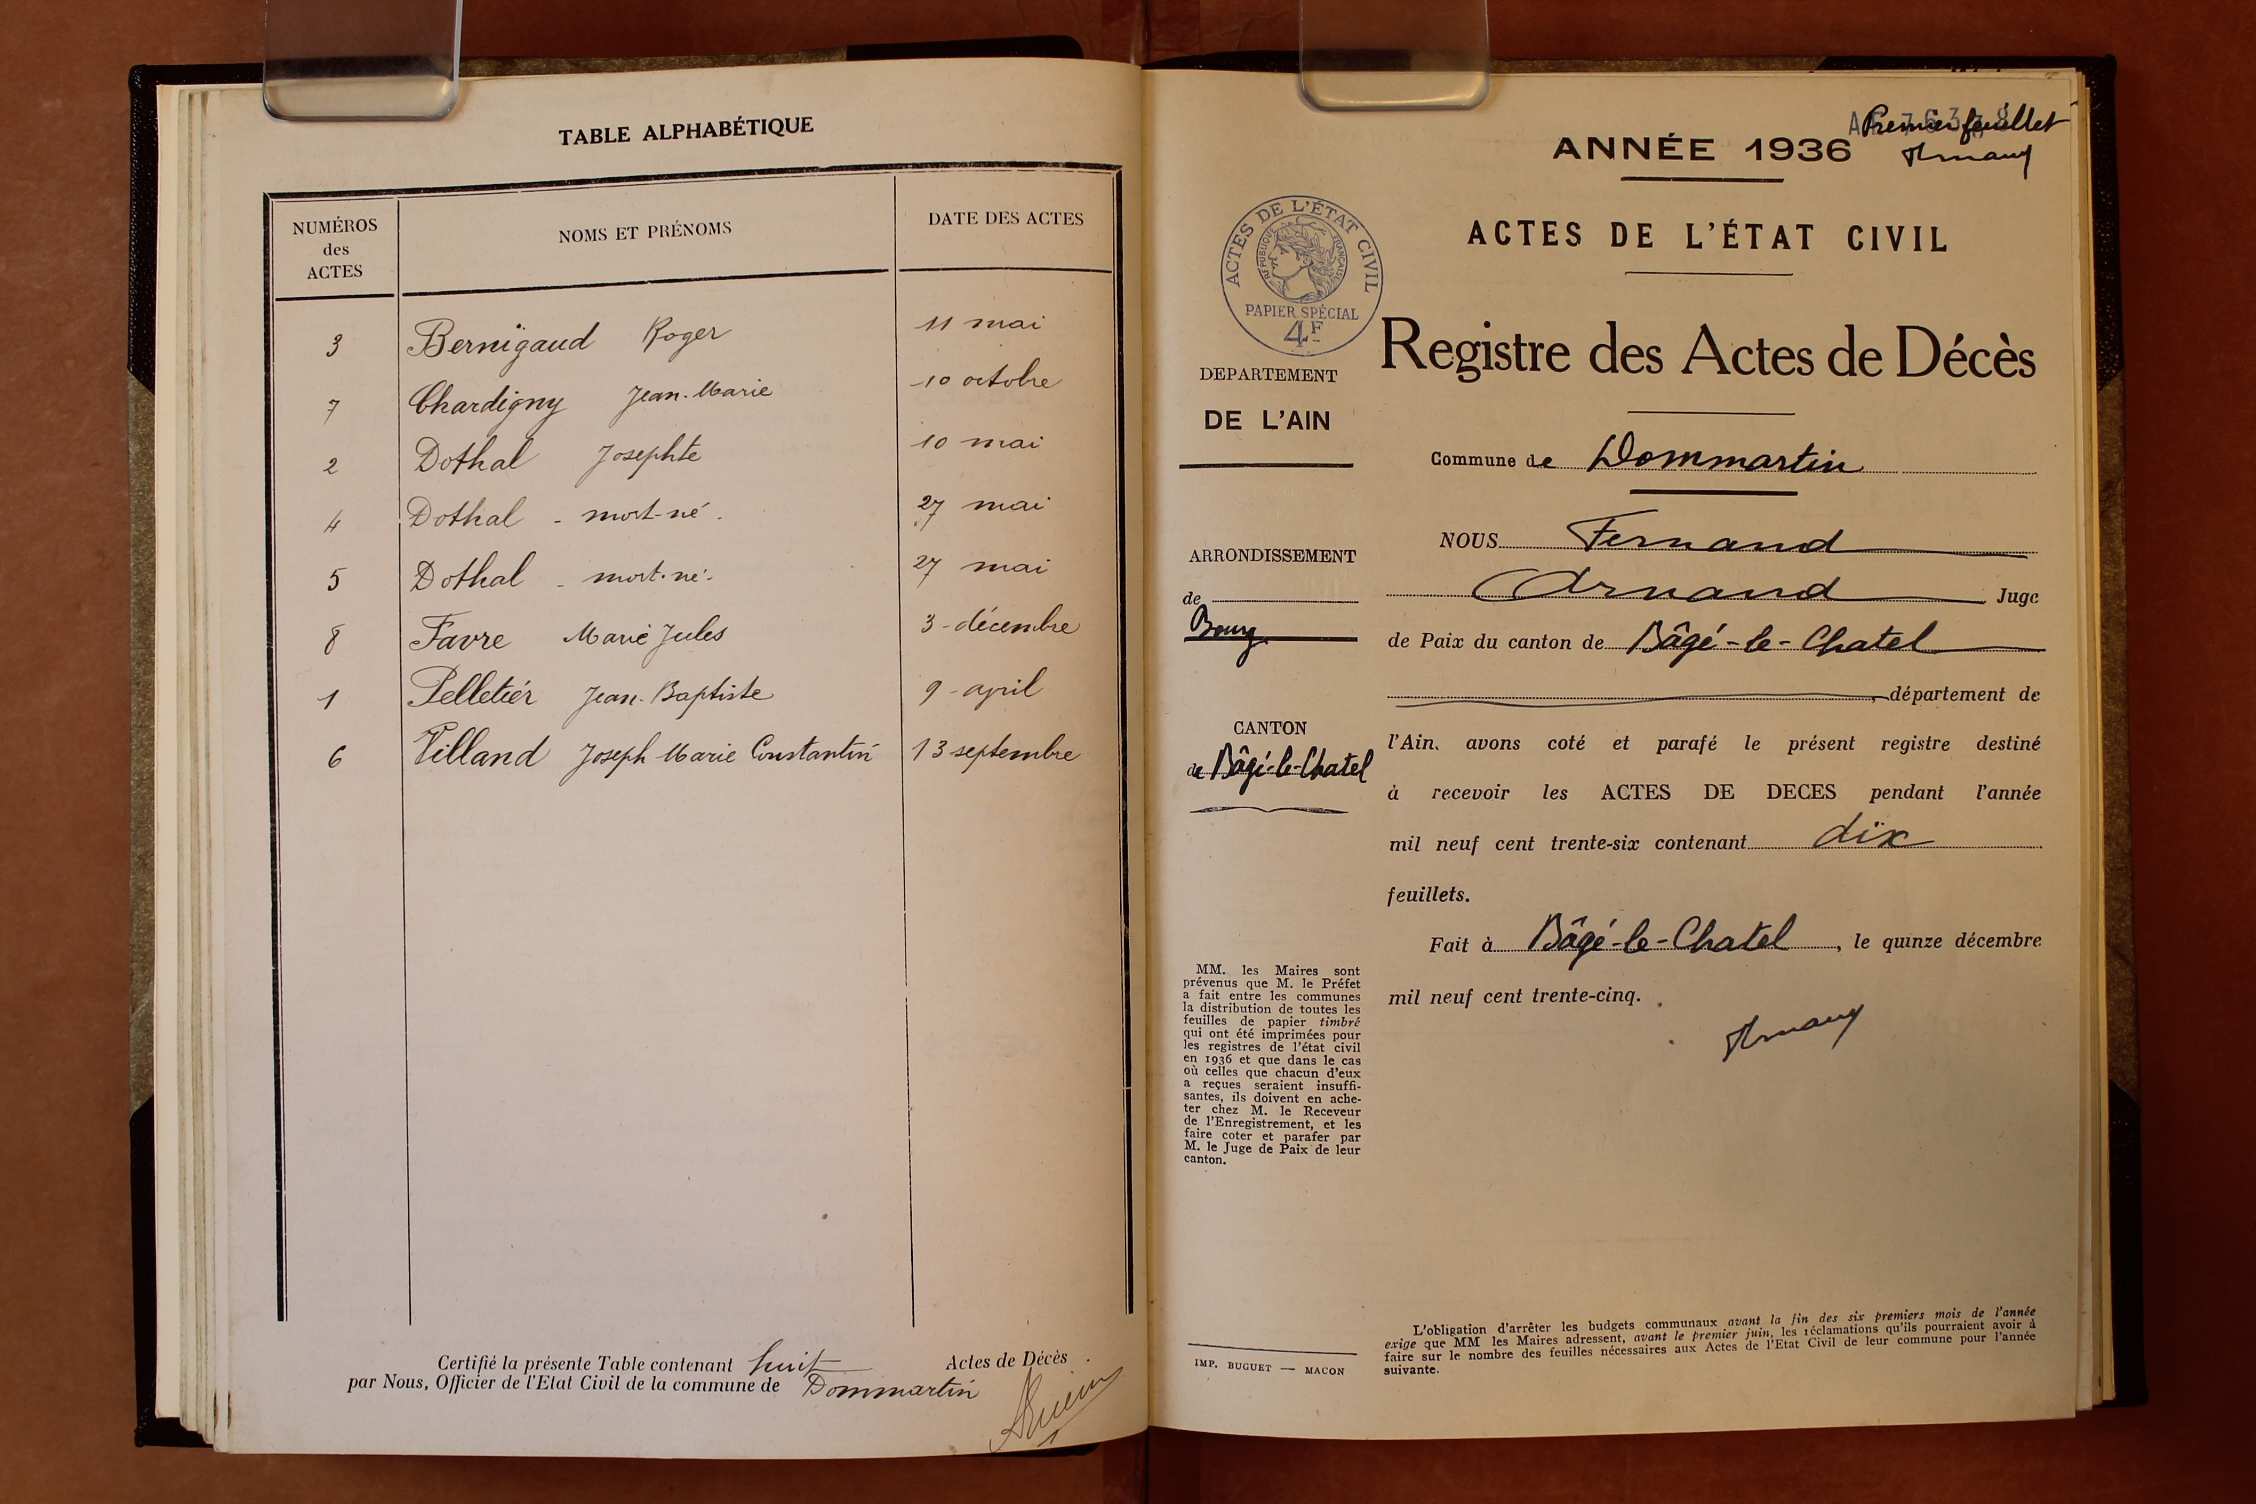 TABLE ALPHABÉTIQUE
NUMÉROS
des
ACTES
NOMS ET PRÉNOMS
DATE DES ACTES
3 Bernigaud Roger 11 mai
7 Chardigny Jean-Marie 10 octobre
2 Dothal Josephte 10 mai
4 Dothal - mort-né. 27 mai
5 Dothal - mort-né. 27 mai
8 Favre Marie Jules 3 - décembre
1 Pelletier Jean-Baptiste 9 - april
6 Villand Joseph Marie Constantin 13 septembre
Certifié la présente Table contenant huit Actes de Décès
par Nous, Officier de l'Etat Civil de la commune de Dommartin
Premier feuillet
Arnaud
ANNÉE 1936
ACTES DE L'ÉTAT CIVIL
Registre des Actes de Décès
ACTES DE L'ÉTAT CIVIL
RÉPUBLIQUE FRANÇAISE
PAPIER SPÉCIAL
4F
DEPARTEMENT
DE L'AIN
ARRONDISSEMENT
de
Bourg
CANTON
de Bâgé-le-Chatel
MM. les Maires sont
prévenus que M. le Préfet
a fait entre les communes
la distribution de toutes les
feuilles de papier timbré
qui ont été imprimées pour
les registres de l'état civil
en 1936 et que dans le cas
où celles que chacun d'eux
a reçues seraient insuffi-
santes, ils doivent en ache-
ter chez M. le Receveur
de l'Enregistrement, et les
faire coter et parafer par
M. le Juge de Paix de leur
canton.
IMP. BUGUET — MACON
Commune de Dommartin
NOUS Fernand
Arnaud Juge
de Paix du canton de Bâgé-le-Chatel
, département de
l'Ain, avons coté et parafé le présent registre destiné
à recevoir les ACTES DE DECES pendant l'année
mil neuf cent trente-six contenant dix
feuillets.
Fait à Bâgé-le-Chatel, le quinze décembre
mil neuf cent trente-cinq.
Arnaud
L'obligation d'arrêter les budgets communaux avant la fin des six premiers mois de l'année
exige que MM les Maires adressent, avant le premier juin, les réclamations qu'ils pourraient avoir à
faire sur le nombre des feuilles nécessaires aux Actes de l'Etat Civil de leur commune pour l'année
suivante.